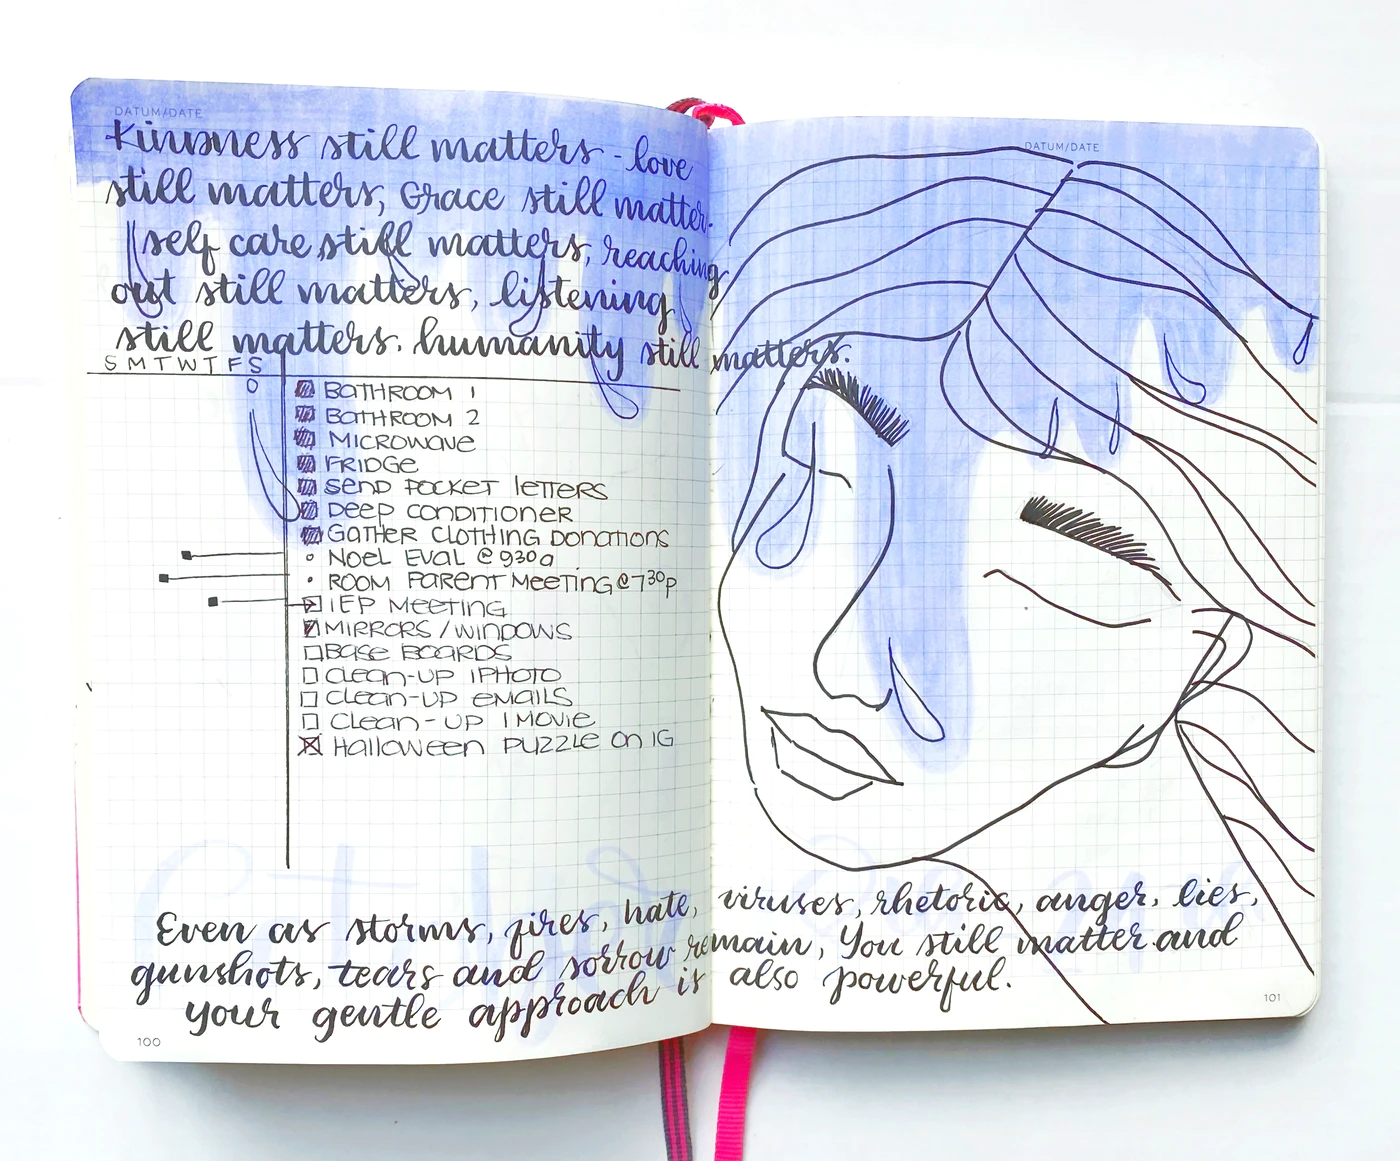 DATUM/DATE
Kindness still matters - love
still matters, Grace still matter.
self care still matters, reaching
out still matters, listening
still matters. humanity still matters.
S M T W T F S
BATHROOM 1
BATHROOM 2
MICROWAVE
FRIDGE
SEND POCKET LETTERS
DEEP CONDITIONER
GATHER CLOTHING DONATIONS
NOEL EVAL @ 930a
ROOM PARENT MEETING @ 730p
IEP MEETING
MIRRORS / WINDOWS
BASE BOARDS
CLEAN-UP IPHOTO
CLEAN-UP EMAILS
CLEAN-UP IMOVIE
HALLOWEEN PUZZLE ON IG
DATUM/DATE
Even as storms, fires, hate, viruses, rhetoric, anger, lies,
gunshots, tears and sorrow remain, You still matter and
your gentle approach is also powerful.
100
101